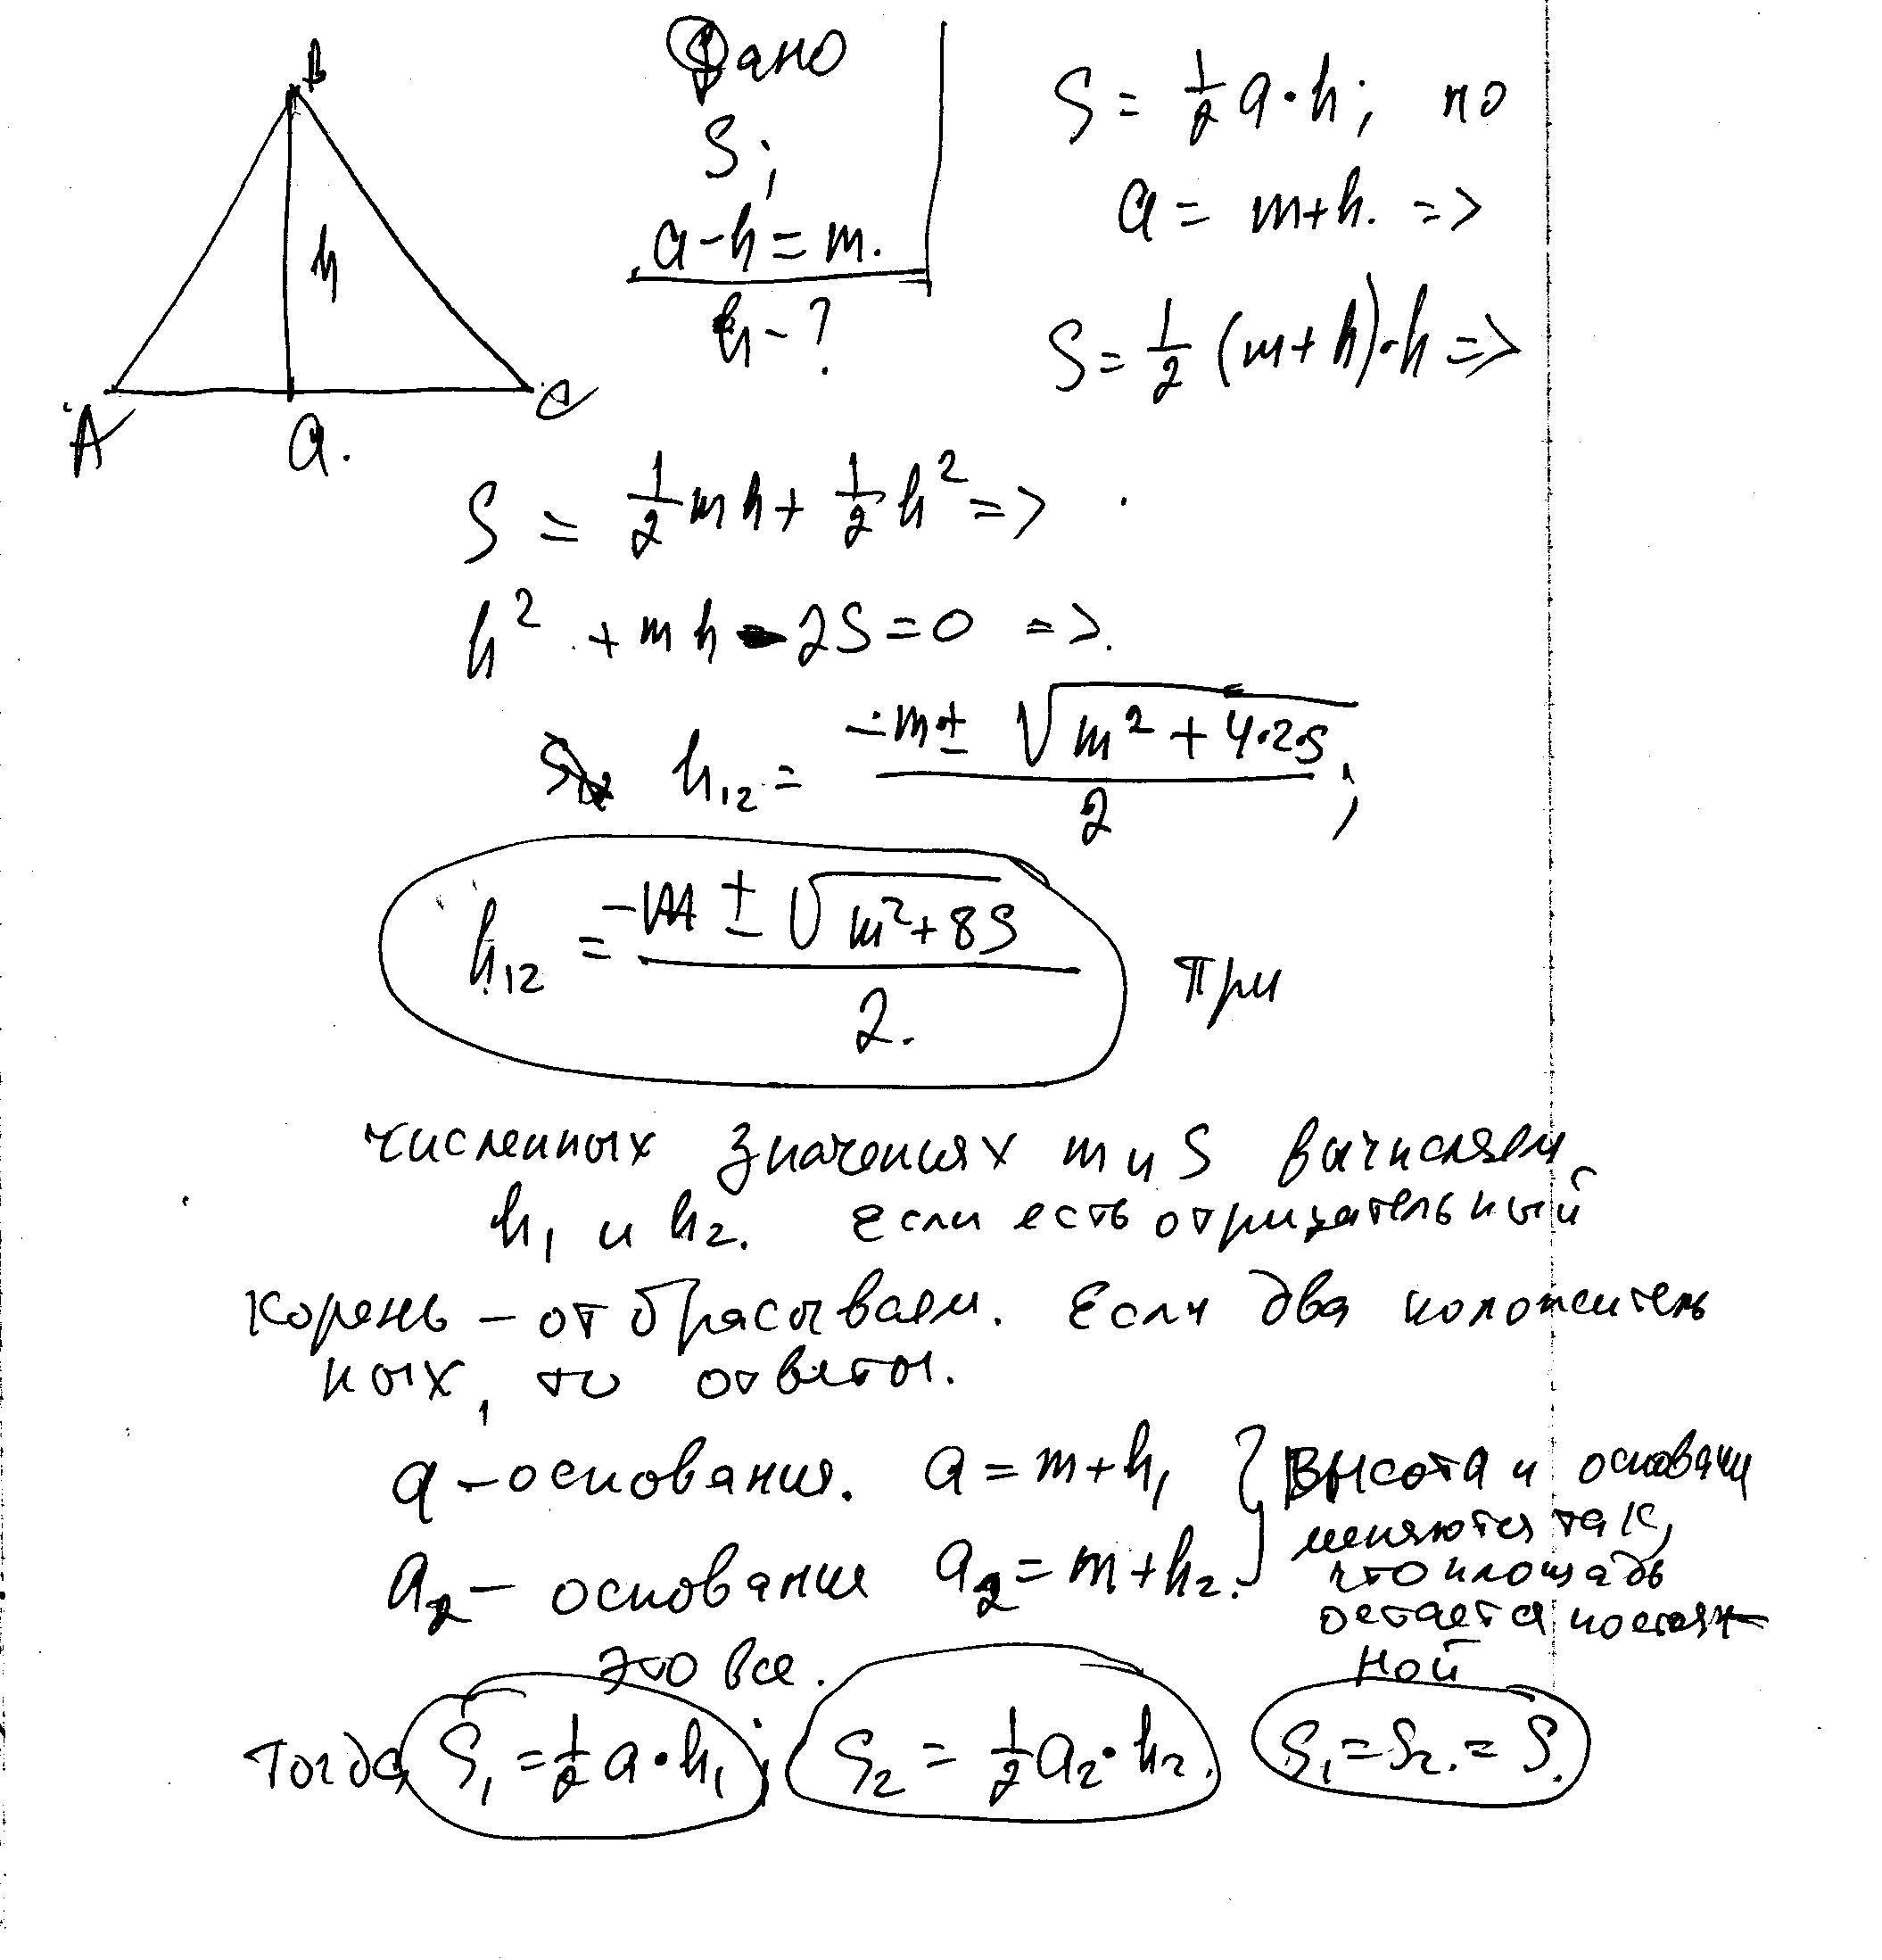 B
h
A
a.
C
Дано
S;
a-h=m.
h-?
S = 1/2 a·h; но
a = m+h. =>
S = 1/2 (m+h)·h =>
S = 1/2 mh + 1/2 h² =>
h² + mh - 2S = 0 =>.
h₁₂ = (-m ± √(m² + 4·2·S))/2;
h₁₂ = (-m ± √(m²+8S))/2. при
численных значениях m и S вычисляем
h₁ и h₂. Если есть отрицательный
корень – отбрасываем. Если два положитель
ных, то ответы.
a – основания. a = m+h₁
a₂ – основания a₂ = m+h₂.
Высота и основани
меняются так,
что площадь
остается постоян
ной
это все.
Тогда S₁ = 1/2 a·h₁; S₂ = 1/2 a₂·h₂. S₁ = S₂. = S.